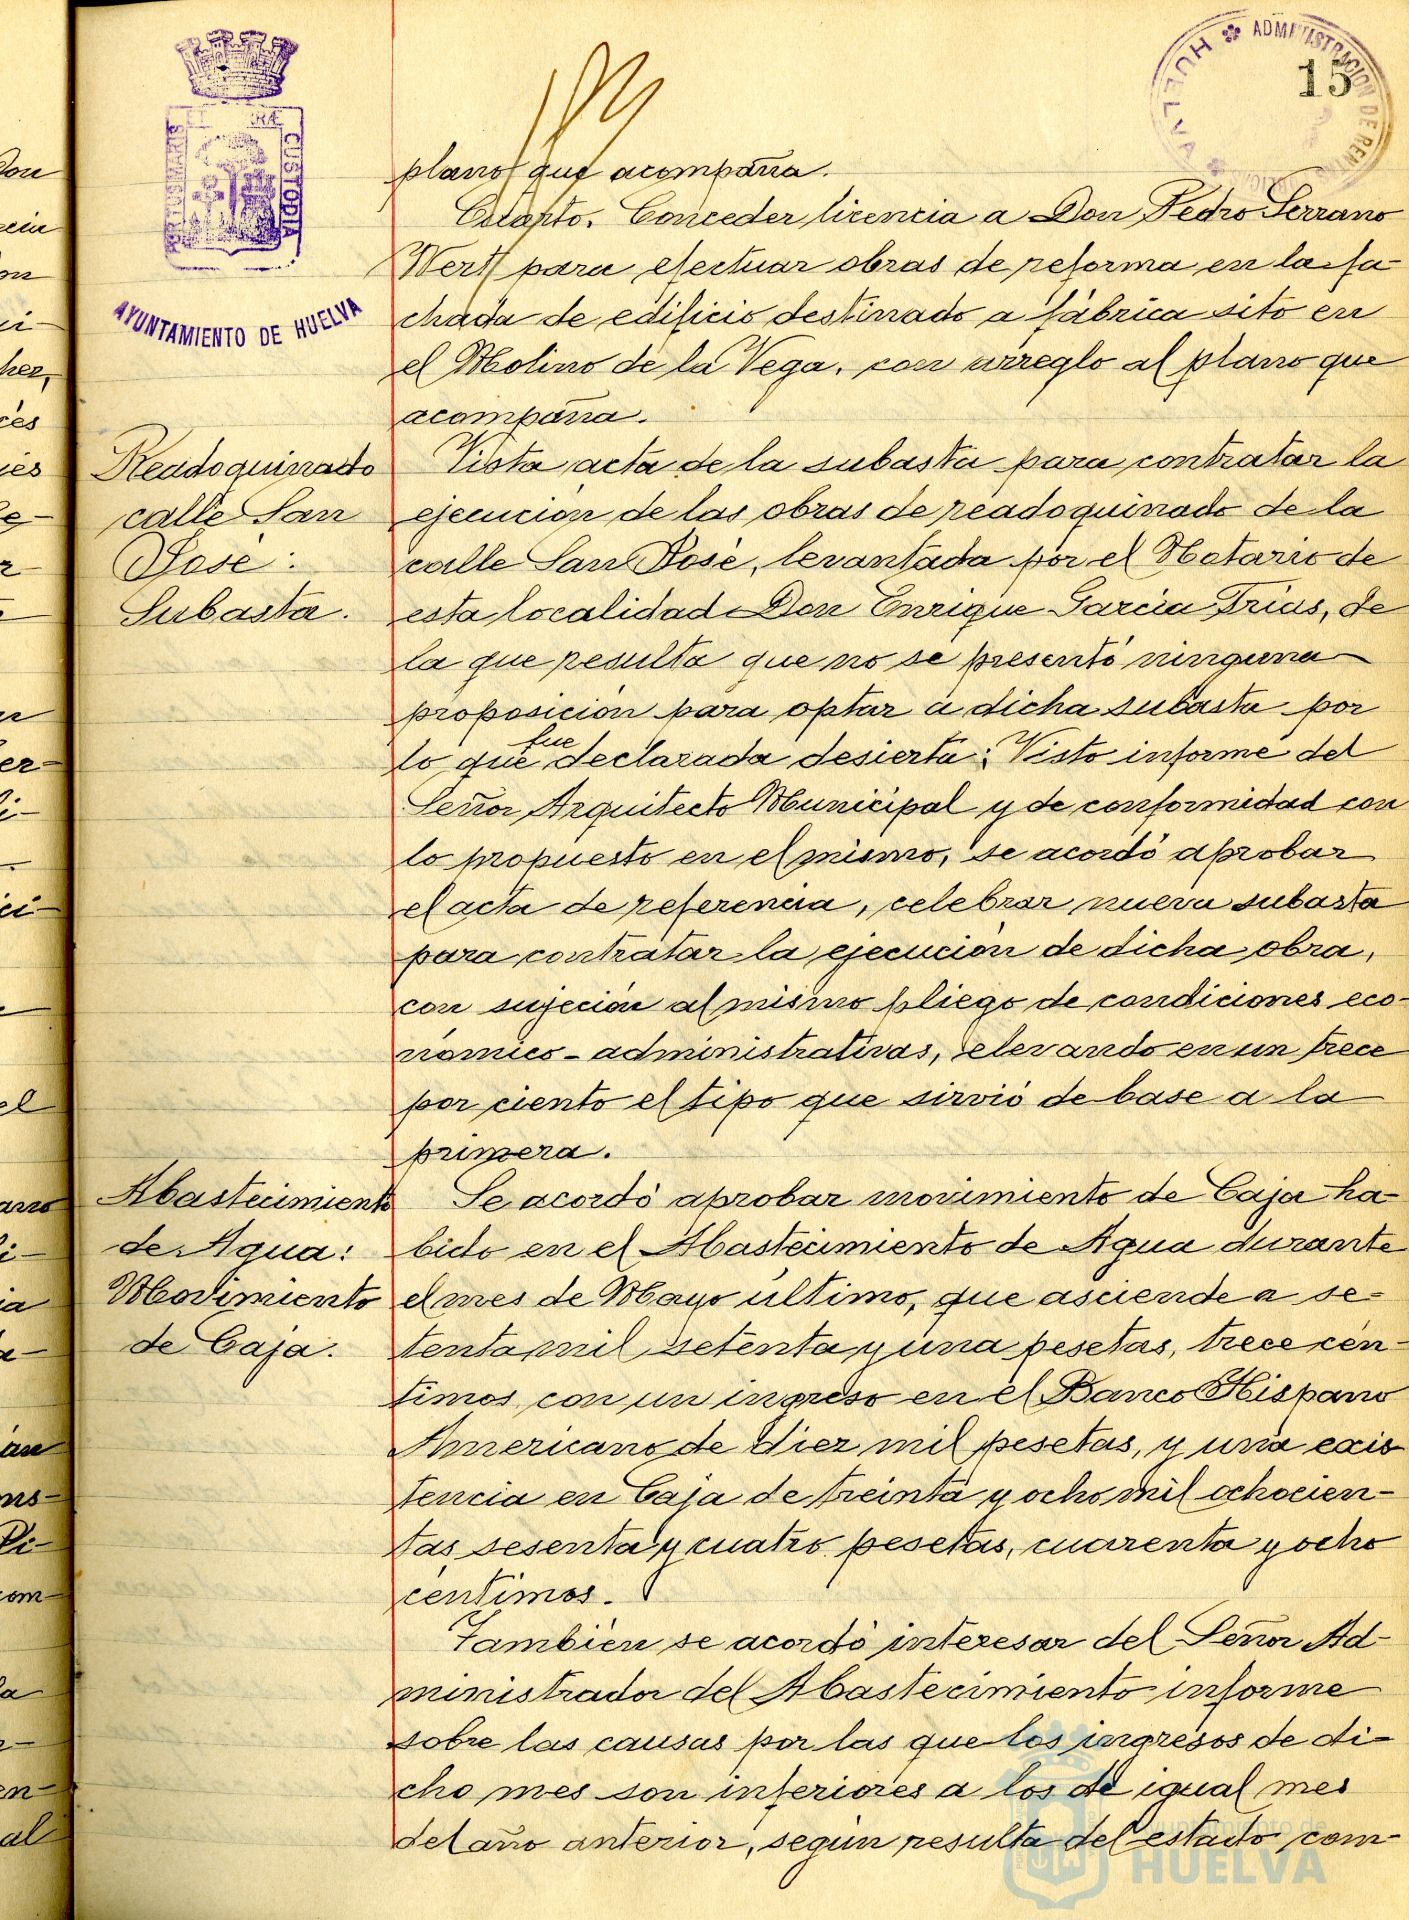 15
HUELVA
ADMINISTRACION DE RENTAS
PORTUS MARIS ET TERRÆ CUSTODIA
AYUNTAMIENTO DE HUELVA
plano que acompaña.
Cuarto. Conceder licencia a Don Pedro Serrano
Wert para efectuar obras de reforma en la fa-
chada de edificio destinado a fábrica sito en
el Molino de la Vega, con arreglo al plano que
acompaña.
Readoquinado
calle San
José:
Subasta.
Vista acta de la subasta para contratar la
ejecución de las obras de readoquinado de la
calle San José, levantada por el Notario de
esta localidad Don Enrique García Frías, de
la que resulta que no se presentó ninguna
proposición para optar a dicha subasta por
lo que fue declarada desierta: Visto informe del
Señor Arquitecto Municipal y de conformidad con
lo propuesto en el mismo, se acordó aprobar
el acta de referencia, celebrar nueva subasta
para contratar la ejecución de dicha obra,
con sujeción al mismo pliego de condiciones eco-
nómico-administrativas, elevando en un trece
por ciento el tipo que sirvió de base a la
primera.
Abastecimiento
de Agua:
Movimiento
de Caja.
Se acordó aprobar movimiento de Caja ha-
bido en el Abastecimiento de Agua durante
el mes de Mayo último, que asciende a se-
tenta mil setenta y una pesetas, trece cén-
timos con un ingreso en el Banco Hispano
Americano de diez mil pesetas, y una exis-
tencia en Caja de treinta y ocho mil ochocien-
tas sesenta y cuatro pesetas, cuarenta y ocho
céntimos.
También se acordó interesar del Señor Ad-
ministrador del Abastecimiento informe
sobre las causas por las que los ingresos de di-
cho mes son inferiores a los de igual mes
del año anterior, según resulta del estado com-
Ayuntamiento de
HUELVA